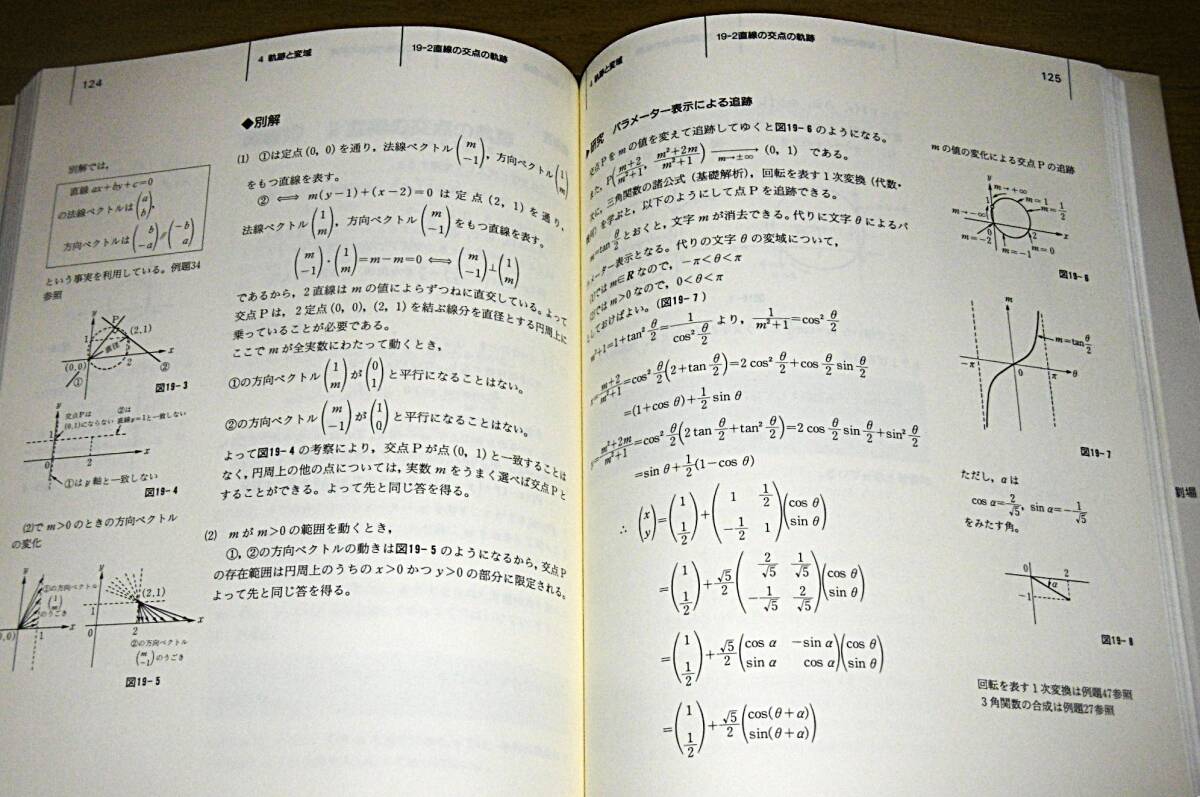 124
4 軌跡と変域
19-2直線の交点の軌跡
別解では,
直線 ax+by+c=0
の法線ベクトルは(a b),
方向ベクトルは(b -a)//(-b a)
という事実を利用している。例題34
参照
y
P
(2,1)
1
直径
(0,0)
2
x
①
②
図19-3
y
交点Pは
(0,1)にならない
②は
直線y=1と一致しない
1
0
2
x
①はy軸と一致しない
図19-4
(2)でm>0のときの方向ベクトル
の変化
①の方向ベクトル
(1 m)
のうごき
1
x
y
(2,1)
1
0
2
x
②の方向ベクトル
(m -1)のうごき
図19-5
◆別解
(1) ①は定点(0, 0)を通り,法線ベクトル(m -1),方向ベクトル(1 m)
をもつ直線を表す。
② ⟺ m(y-1)+(x-2)=0 は定点(2, 1)を通り,
法線ベクトル(1 m),方向ベクトル(m -1)をもつ直線を表す。
(m -1)・(1 m)=m-m=0 ⟺ (m -1)⊥(1 m)
であるから,2直線はmの値によらずつねに直交している。よって
交点Pは,2定点(0, 0),(2, 1)を結ぶ線分を直径とする円周上に
乗っていることが必要である。
ここでmが全実数にわたって動くとき,
①の方向ベクトル(1 m)が(0 1)と平行になることはない。
②の方向ベクトル(m -1)が(1 0)と平行になることはない。
よって図19-4の考察により,交点Pが点(0, 1)と一致することは
なく,円周上の他の点については,実数mをうまく選べば交点Pと
することができる。よって先と同じ答を得る。
(2) mがm>0の範囲を動くとき,
①,②の方向ベクトルの動きは図19-5のようになるから,交点P
の存在範囲は円周上のうちのx>0かつy>0の部分に限定される。
よって先と同じ答を得る。
4 軌跡と変域
19-2直線の交点の軌跡
125
研究 パラメーター表示による追跡
交点Pをmの値を変えて追跡してゆくと図19-6のようになる。
また, P((m+2)/(m²+1), (m²+2m)/(m²+1)) →(m→±∞) (0, 1) である。
次に,三角関数の諸公式(基礎解析),回転を表す1次変換(代数・
幾何)を学ぶと,以下のようにして点Pを追跡できる。
m=tan θ/2 とおくと,文字mが消去できる。代りに文字θによるパ
ラメーター表示となる。代りの文字θの変域について,
(1)ではm∈Rなので, -π<θ<π
(2)ではm>0なので, 0<θ<π
としておけばよい。(図19-7)
m²+1=1+tan² θ/2=1/(cos² θ/2) より, 1/(m²+1)=cos² θ/2
x=(m+2)/(m²+1)=cos² θ/2(2+tan θ/2)=2 cos² θ/2+cos θ/2 sin θ/2
=(1+cos θ)+1/2 sin θ
y=(m²+2m)/(m²+1)=cos² θ/2(2 tan θ/2+tan² θ/2)=2 cos θ/2 sin θ/2+sin² θ/2
=sin θ+1/2(1-cos θ)
∴ (x y)=(1 1/2)+(1 1/2 -1/2 1)(cos θ sin θ)
=(1 1/2)+√5/2(2/√5 1/√5 -1/√5 2/√5)(cos θ sin θ)
=(1 1/2)+√5/2(cos α -sin α sin α cos α)(cos θ sin θ)
=(1 1/2)+√5/2(cos(θ+α) sin(θ+α))
mの値の変化による交点Pの追跡
y
m→+∞
m=1
m=1/2
m→-∞
0
x
m=-2
m=-1
m=0
図19-6
m
m=tan θ/2
-π
0
π
θ
図19-7
ただし,αは
cos α=2/√5, sin α=-1/√5
をみたす角。
0
2
α
-1
図19-8
回転を表す1次変換は例題47参照
3角関数の合成は例題27参照
劇場